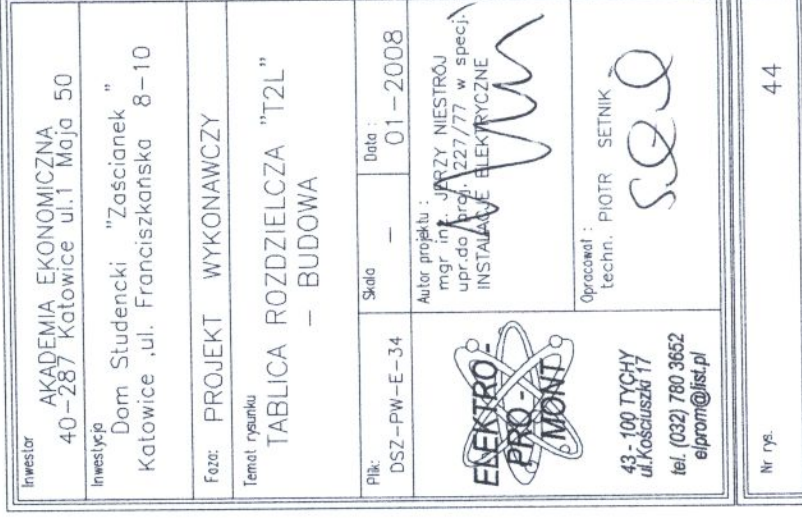 Inwestor
AKADEMIA EKONOMICZNA
40-287 Katowice ul.1 Maja 50
Inwestycja
Dom Studencki "Zaścianek"
Katowice ,ul. Franciszkańska 8-10
Faza: PROJEKT WYKONAWCZY
Temat rysunku
TABLICA ROZDZIELCZA "T2L"
- BUDOWA
Plik:
DSZ-PW-E-34
Skala
-
Data :
01-2008
ELEKTRO-
PRO-
MONT
43 - 100 TYCHY
ul.Kościuszki 17
tel. (032) 780 3652
elprom@list.pl
Autor projektu :
mgr inż. JERZY NIESTRÓJ
upr.do proj. 227/77 w specj.
INSTALACJE ELEKTRYCZNE
Opracował :
techn. PIOTR SETNIK
Nr rys.
44